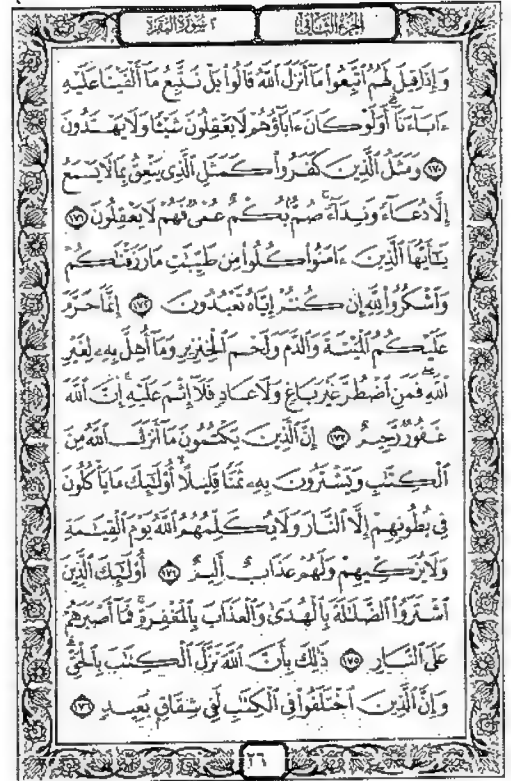 الجزء الثاني
٢ سورة البقرة
وَإِذَا قِيلَ لَهُمُ ٱتَّبِعُوا۟ مَآ أَنزَلَ ٱللَّهُ قَالُوا۟ بَلْ نَتَّبِعُ مَآ أَلْفَيْنَا عَلَيْهِ
ءَابَآءَنَآ ۗ أَوَلَوْ كَانَ ءَابَآؤُهُمْ لَا يَعْقِلُونَ شَيْـًٔا وَلَا يَهْتَدُونَ
١٧٠ وَمَثَلُ ٱلَّذِينَ كَفَرُوا۟ كَمَثَلِ ٱلَّذِى يَنْعِقُ بِمَا لَا يَسْمَعُ
إِلَّا دُعَآءً وَنِدَآءً ۚ صُمٌّۢ بُكْمٌ عُمْىٌ فَهُمْ لَا يَعْقِلُونَ ١٧١
يَـٰٓأَيُّهَا ٱلَّذِينَ ءَامَنُوا۟ كُلُوا۟ مِن طَيِّبَـٰتِ مَا رَزَقْنَـٰكُمْ
وَٱشْكُرُوا۟ لِلَّهِ إِن كُنتُمْ إِيَّاهُ تَعْبُدُونَ ١٧٢ إِنَّمَا حَرَّمَ
عَلَيْكُمُ ٱلْمَيْتَةَ وَٱلدَّمَ وَلَحْمَ ٱلْخِنزِيرِ وَمَآ أُهِلَّ بِهِۦ لِغَيْرِ
ٱللَّهِ ۖ فَمَنِ ٱضْطُرَّ غَيْرَ بَاغٍ وَلَا عَادٍ فَلَآ إِثْمَ عَلَيْهِ ۚ إِنَّ ٱللَّهَ
غَفُورٌ رَّحِيمٌ ١٧٣ إِنَّ ٱلَّذِينَ يَكْتُمُونَ مَآ أَنزَلَ ٱللَّهُ مِنَ
ٱلْكِتَـٰبِ وَيَشْتَرُونَ بِهِۦ ثَمَنًا قَلِيلًا ۙ أُو۟لَـٰٓئِكَ مَا يَأْكُلُونَ
فِى بُطُونِهِمْ إِلَّا ٱلنَّارَ وَلَا يُكَلِّمُهُمُ ٱللَّهُ يَوْمَ ٱلْقِيَـٰمَةِ
وَلَا يُزَكِّيهِمْ وَلَهُمْ عَذَابٌ أَلِيمٌ ١٧٤ أُو۟لَـٰٓئِكَ ٱلَّذِينَ
ٱشْتَرَوُا۟ ٱلضَّلَـٰلَةَ بِٱلْهُدَىٰ وَٱلْعَذَابَ بِٱلْمَغْفِرَةِ ۚ فَمَآ أَصْبَرَهُمْ
عَلَى ٱلنَّارِ ١٧٥ ذَٰلِكَ بِأَنَّ ٱللَّهَ نَزَّلَ ٱلْكِتَـٰبَ بِٱلْحَقِّ ۗ
وَإِنَّ ٱلَّذِينَ ٱخْتَلَفُوا۟ فِى ٱلْكِتَـٰبِ لَفِى شِقَاقٍۭ بَعِيدٍ ١٧٦
٢٦